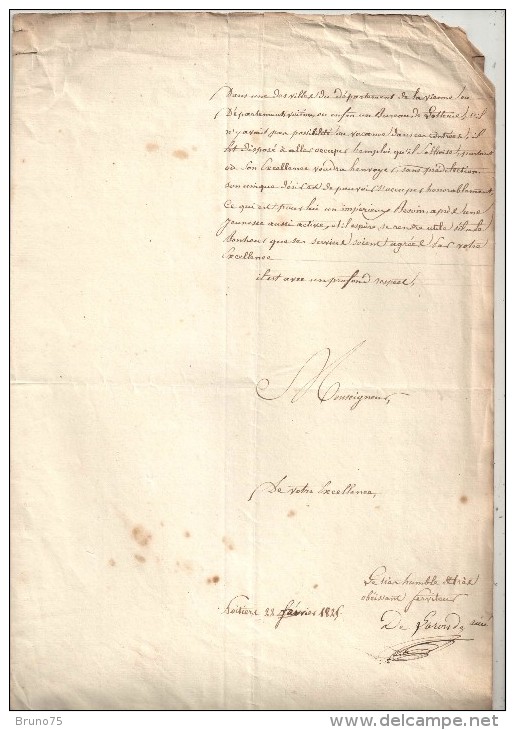 Dans une des villes du département de la vienne ou
Départements voisins, ou enfin un Bureau de Lotterie s'il
n'y avait pas possibilité ou vacance dans ces contrées, il
est disposé à aller occuper l'emploi qu'il sollicite, partout
où Son Excellence voudra l'envoyer, sans prédilection,
son unique désir est de pouvoir s'occuper honorablement
Ce qui est pour lui un impérieux Besoin, après une
jeunesse aussi active, et il espère, se rendre utile s'il a le
bonheur que ses services soient agréés par votre
Excellence
il est avec un profond respect,
Monseigneur,
De votre Excellence,
Le très humble et très
obéissant serviteur
Poitiers 22 février
De
Bruno75
www.delcampe.net